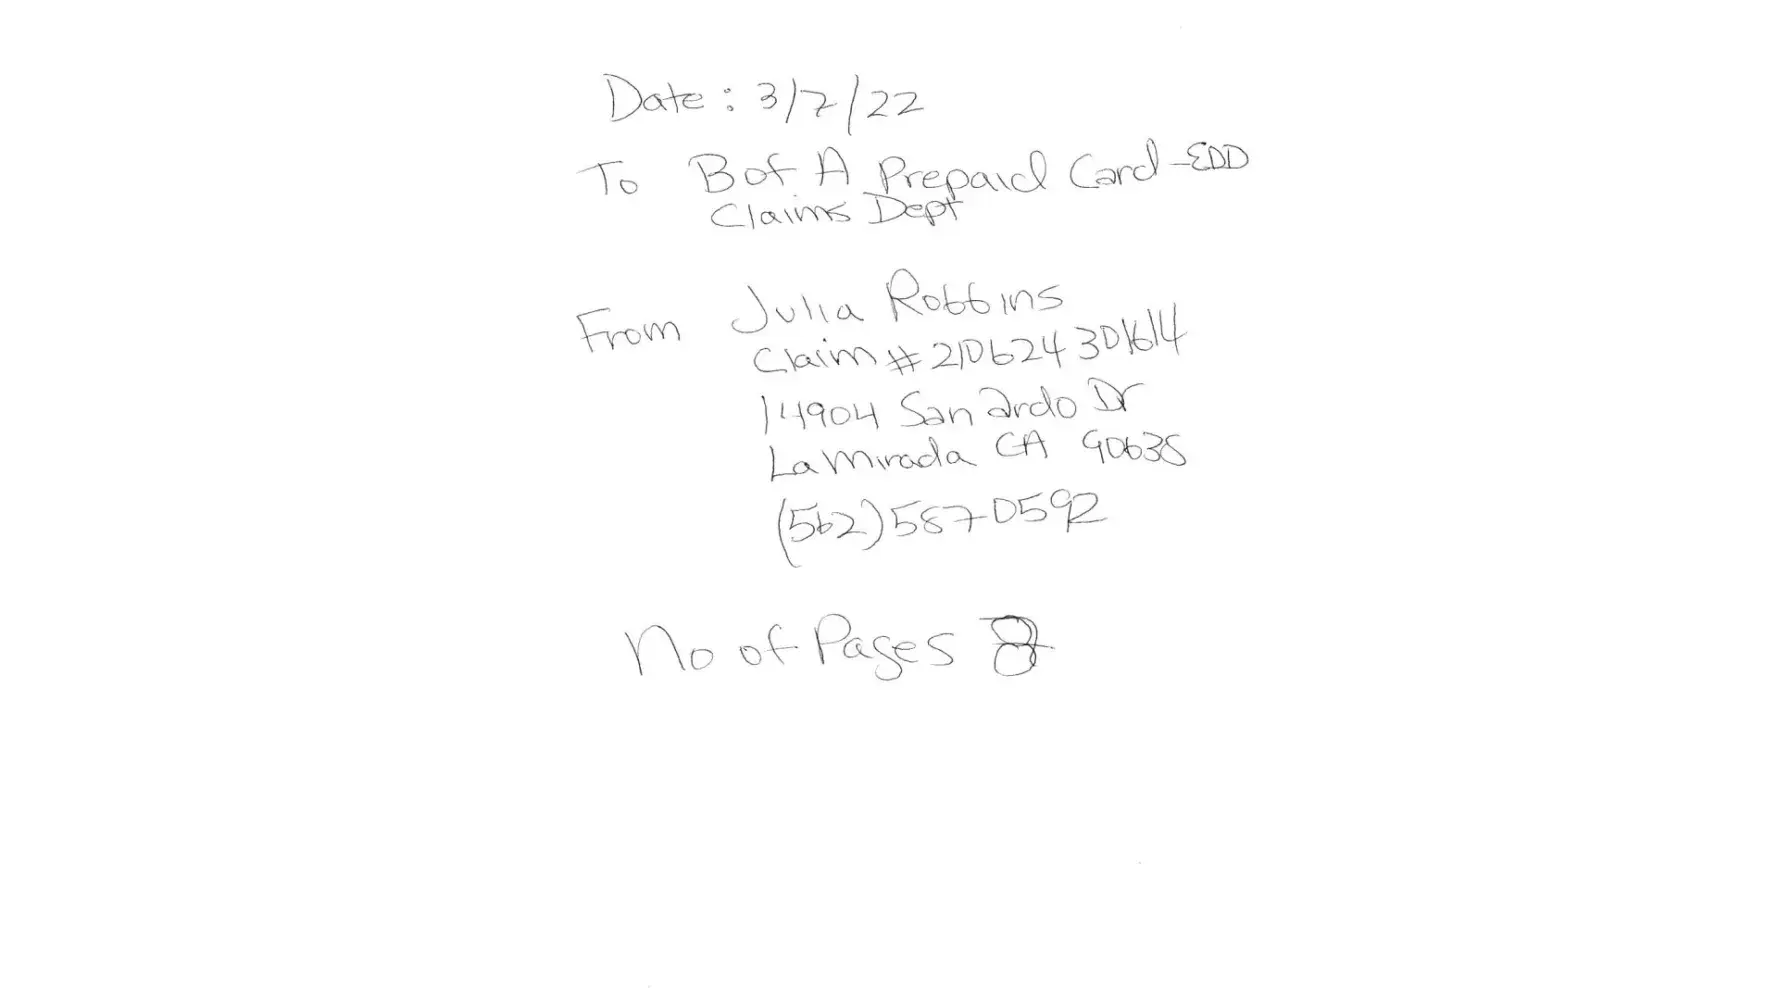 Date: 3/7/22
To B of A Prepaid Card - EDD
Claims Dept
From Julia Robbins
Claim # 210624301614
14904 San Ardo Dr
La Mirada CA 90638
(562) 587-0592
No of Pages 8